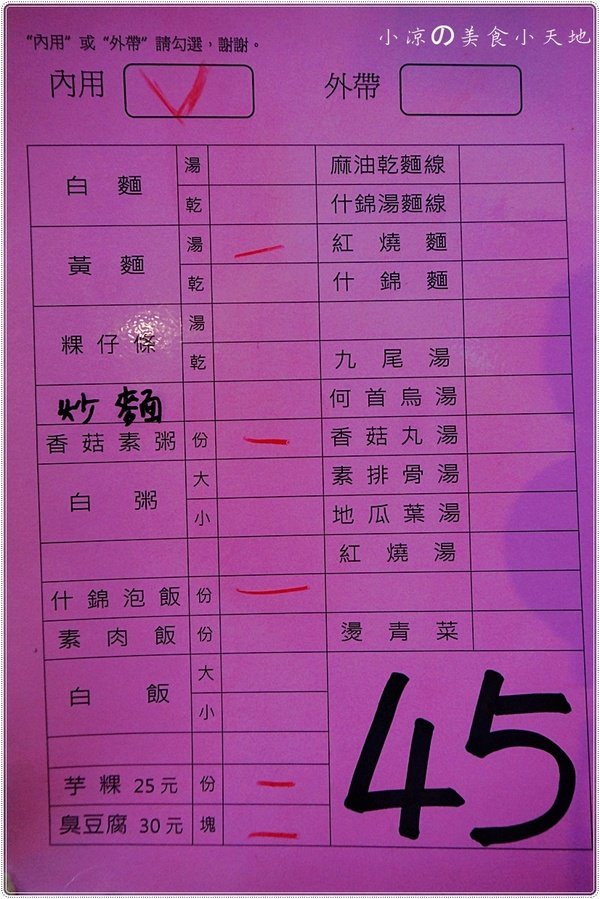 小涼の美食小天地
“內用” 或 “外帶” 請勾選，謝謝。
內用 外帶
白麵 湯 麻油乾麵線
乾 什錦湯麵線
黃麵 湯 一 紅燒麵
乾 什錦麵
粿仔條 湯
乾 九尾湯
炒麵 何首烏湯
香菇素粥 份 一 香菇丸湯
白粥 大 素排骨湯
小 地瓜葉湯
紅燒湯
什錦泡飯 份 一
素肉飯 份 燙青菜
白飯 大
小
45
芋粿 25元 份 一
臭豆腐 30元 塊 一